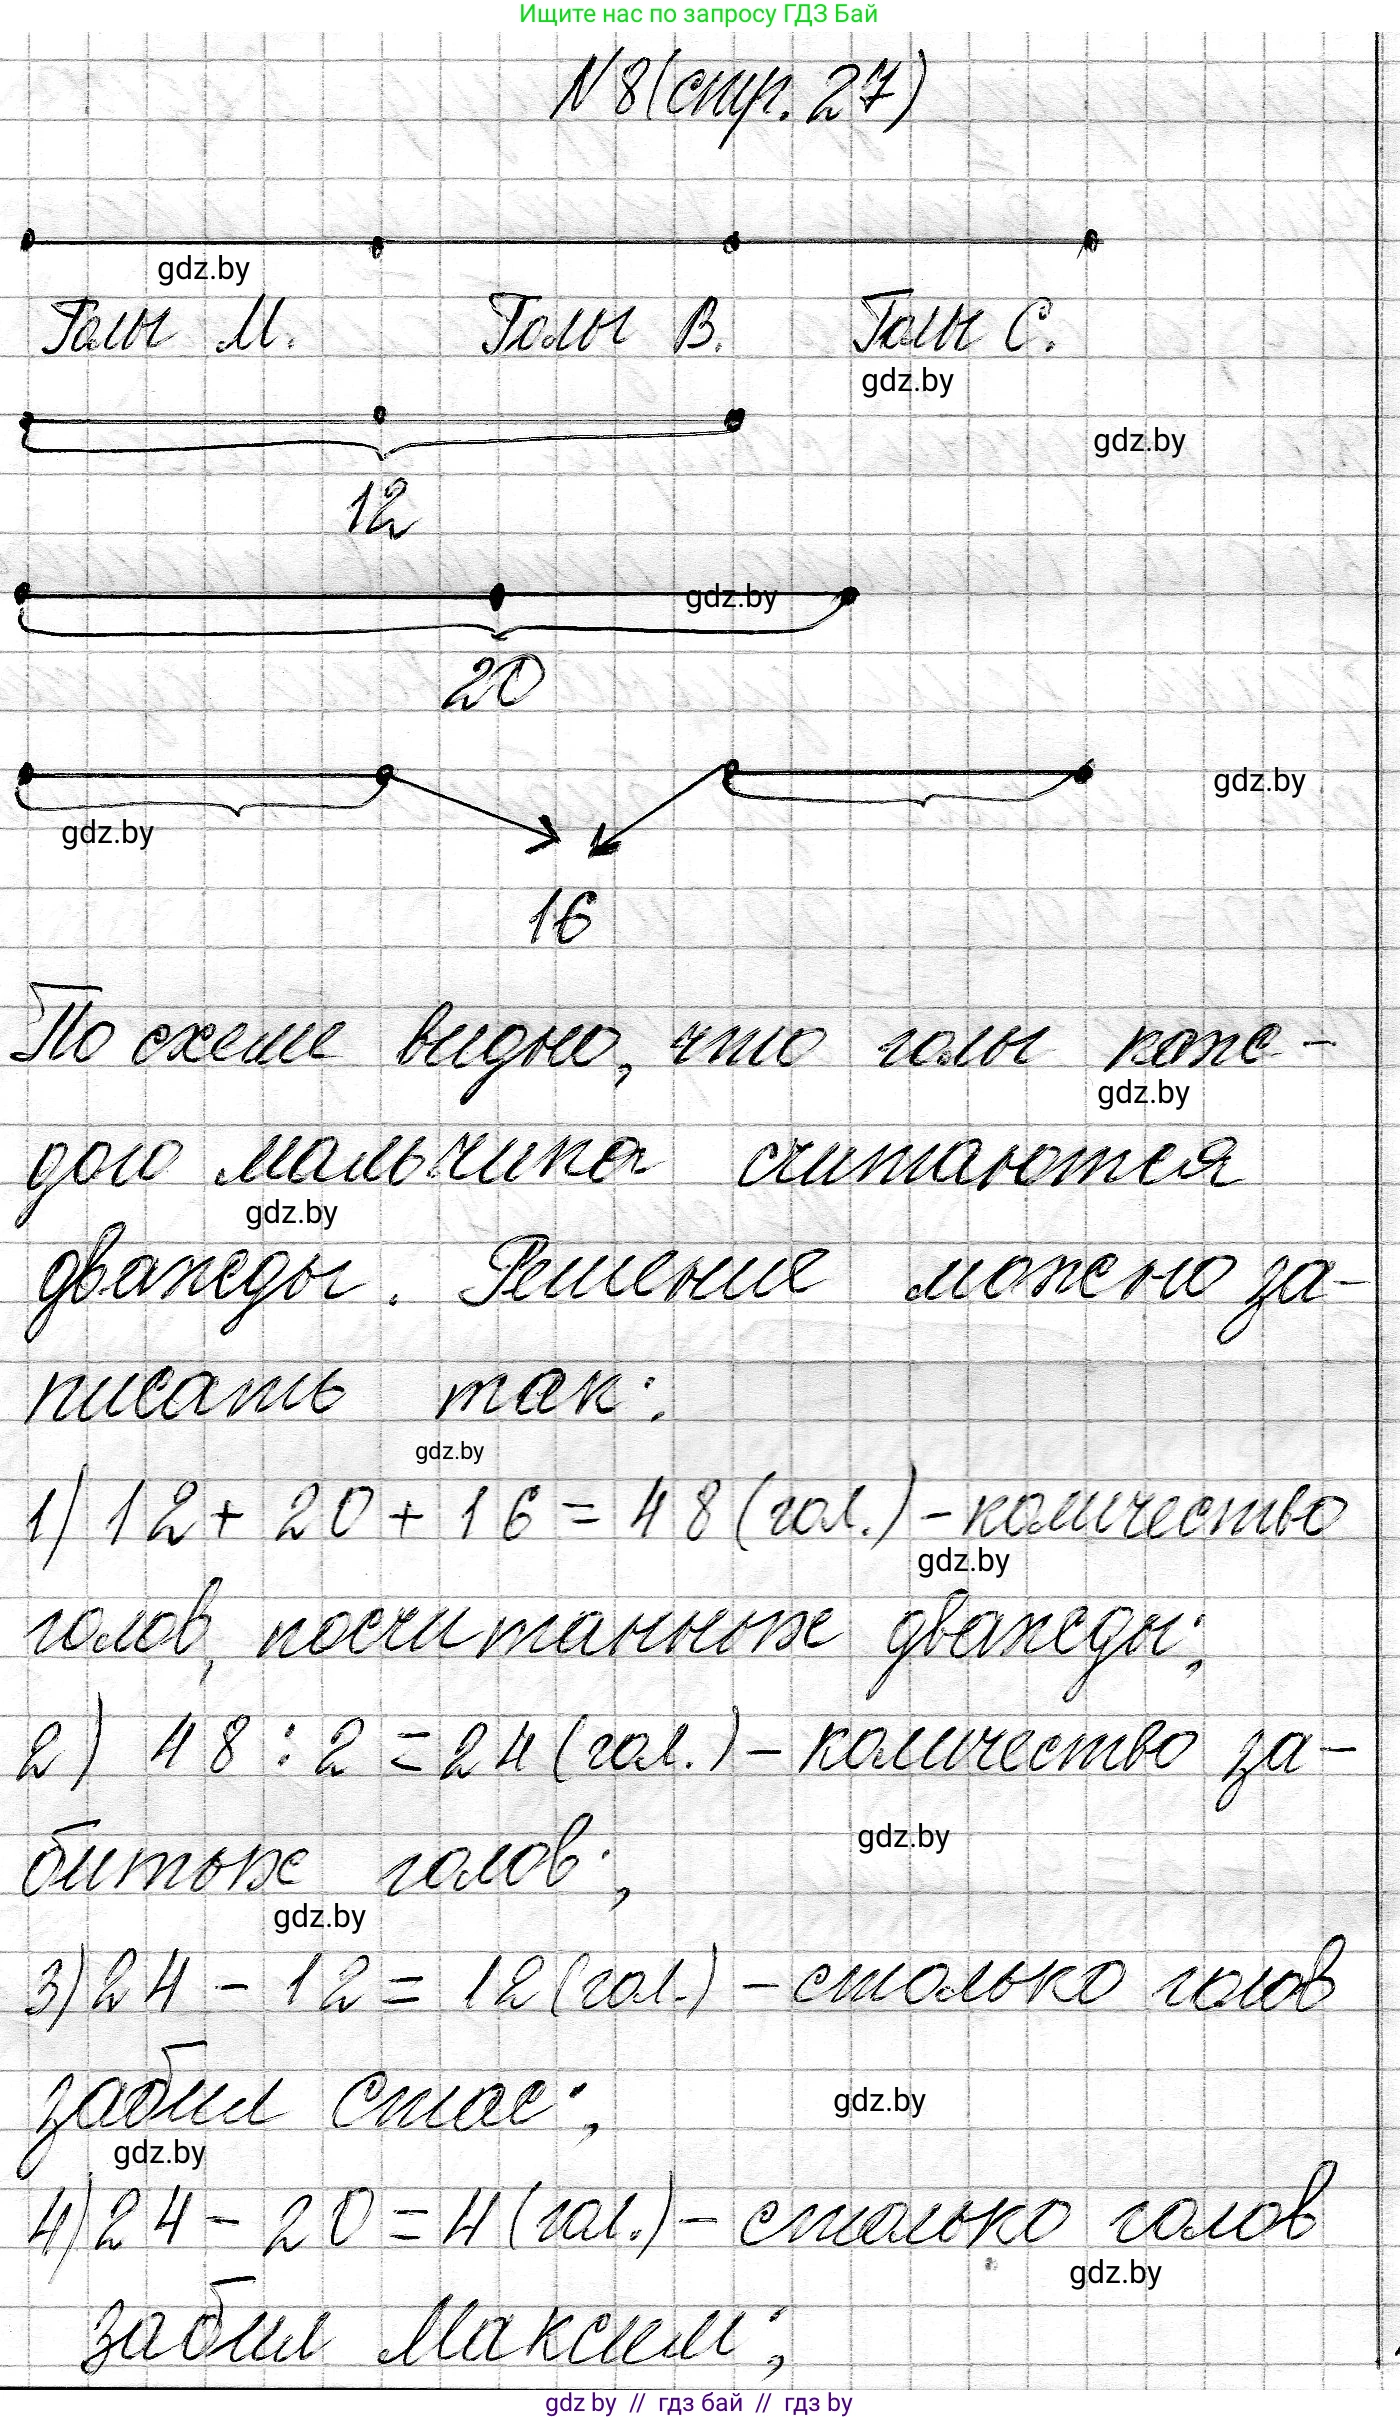 Ищите нас по запросу ГДЗ Бай
N8(стр. 27)
gdz.by
Голы М. Голы В. Голы С.
gdz.by
gdz.by
12
gdz.by
20
gdz.by
gdz.by
16
По схеме видно, что голы каж-
gdz.by
дого мальчика считаются
gdz.by
дважды. Решение можно за-
писать так:
gdz.by
1) 12 + 20 + 16 = 48 (гол.) - количество
gdz.by
голов, посчитанных дважды;
2) 48 : 2 = 24 (гол.) - количество за-
gdz.by
битых голов;
gdz.by
3) 24 - 12 = 12 (гол.) - столько голов
забил Стас;
gdz.by
gdz.by
4) 24 - 20 = 4 (гол.) - столько голов
gdz.by
забил Максим;
gdz by // гдз бай // гдз by